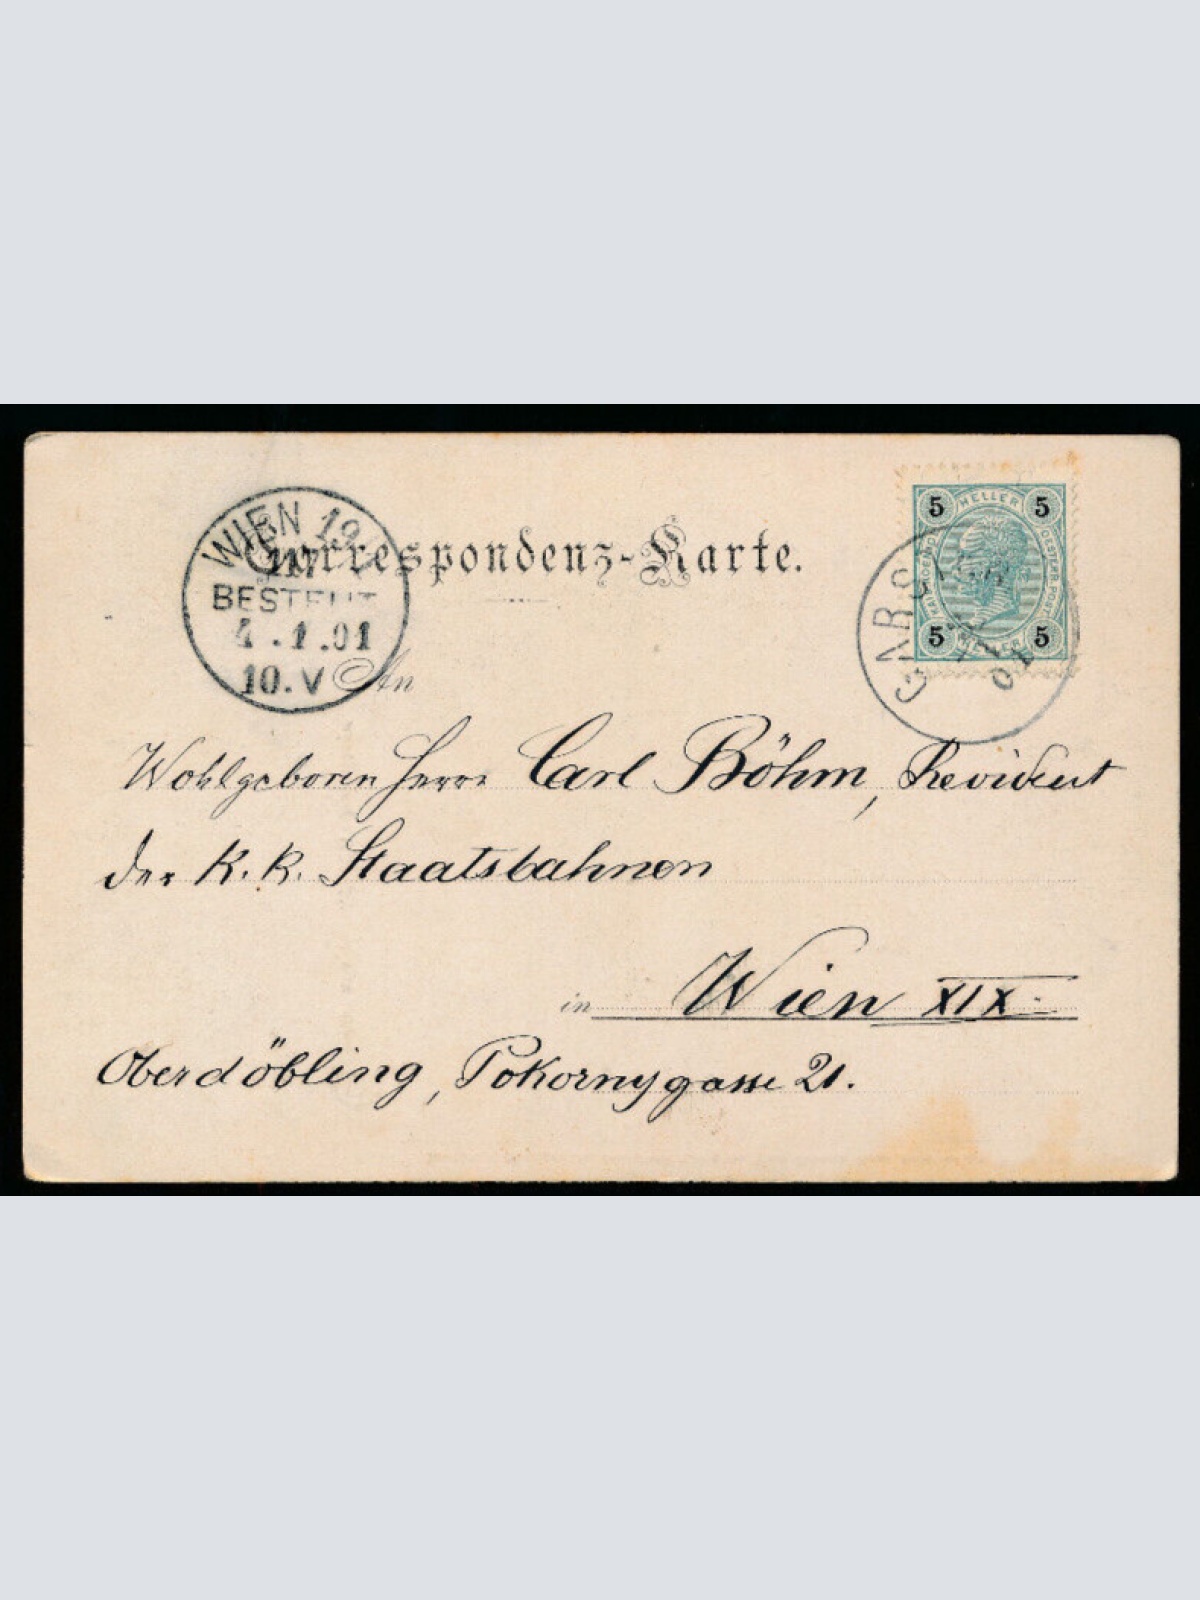 Correspondenz-Karte.
WIEN 19
117
BESTELLT
4.1.01
10.V
5 HELLER 5
5 HELLER 5
GARS
01
An
Wohlgeboren Herrn Carl Böhm, Revident
der K.K. Staatsbahnen
in Wien XIX.
Oberdöbling, Pokornygasse 21.